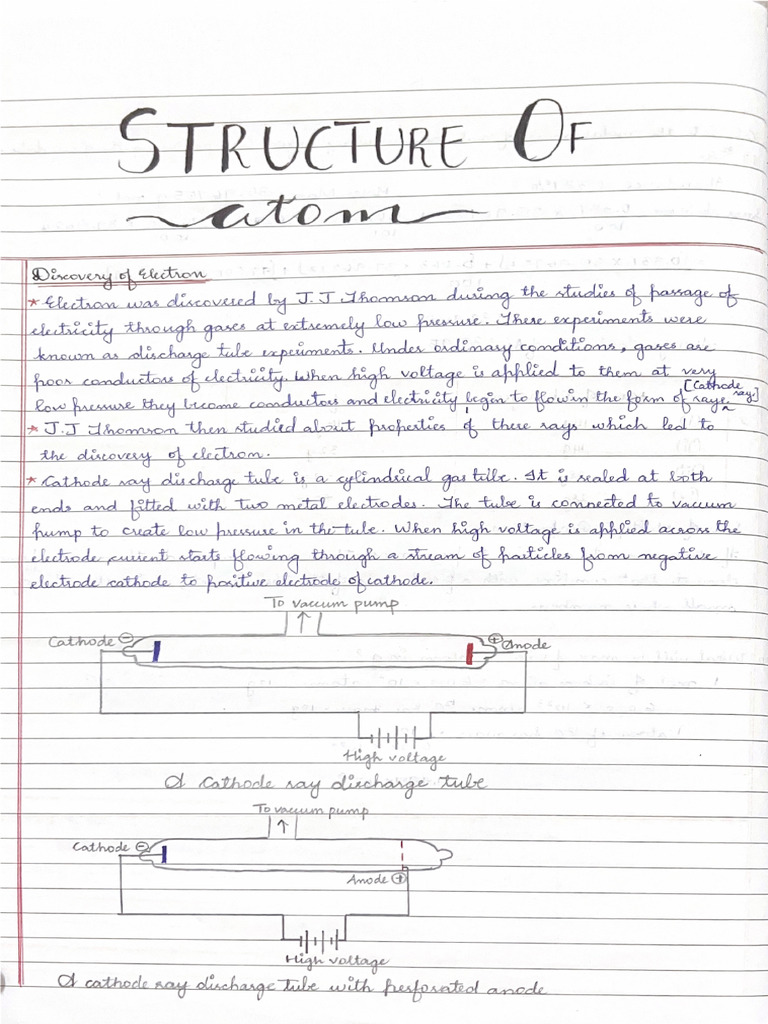 STRUCTURE OF
atom
Discovery of Electron
* Electron was discovered by J.J Thomson during the studies of passage of
electricity through gases at extremely low pressure. These experiments were
known as discharge tube experiments. Under ordinary conditions, gases are
poor conductors of electricity. When high voltage is applied to them at very
low pressure they become conductors and electricity begin to flow in the form of rays. [Cathode ray]
* J.J Thomson then studied about properties of these rays which led to
the discovery of electron.
* Cathode ray discharge tube is a cylindrical gas tube. It is sealed at both
ends and fitted with two metal electrodes. The tube is connected to vacuum
pump to create low pressure in the tube. When high voltage is applied across the
electrode, current starts flowing through a stream of particles from negative
electrode cathode to positive electrode of cathode.
To vaccum pump
Cathode ⊖
⊕ Anode
High voltage
A cathode ray discharge tube
To vacuum pump
Cathode ⊖
Anode ⊕
High voltage
A cathode ray discharge tube with perforated anode